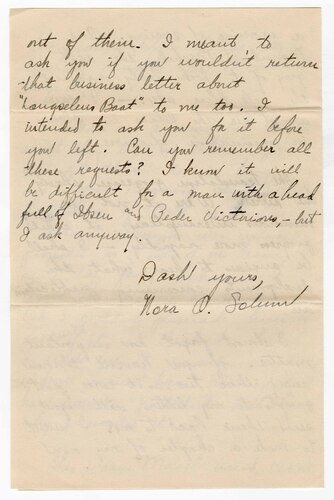 out of them. I meant to
ask you if you wouldn't return
that business letter about
"Langselens Baat" to me too. I
intended to ask you for it before
you left. Can you remember all
these requests? I know it will
be difficult for a man with a head
full of Ibsen and Peder Victorious, - but
I ask anyway.
Dash yours,
Nora O. Solum